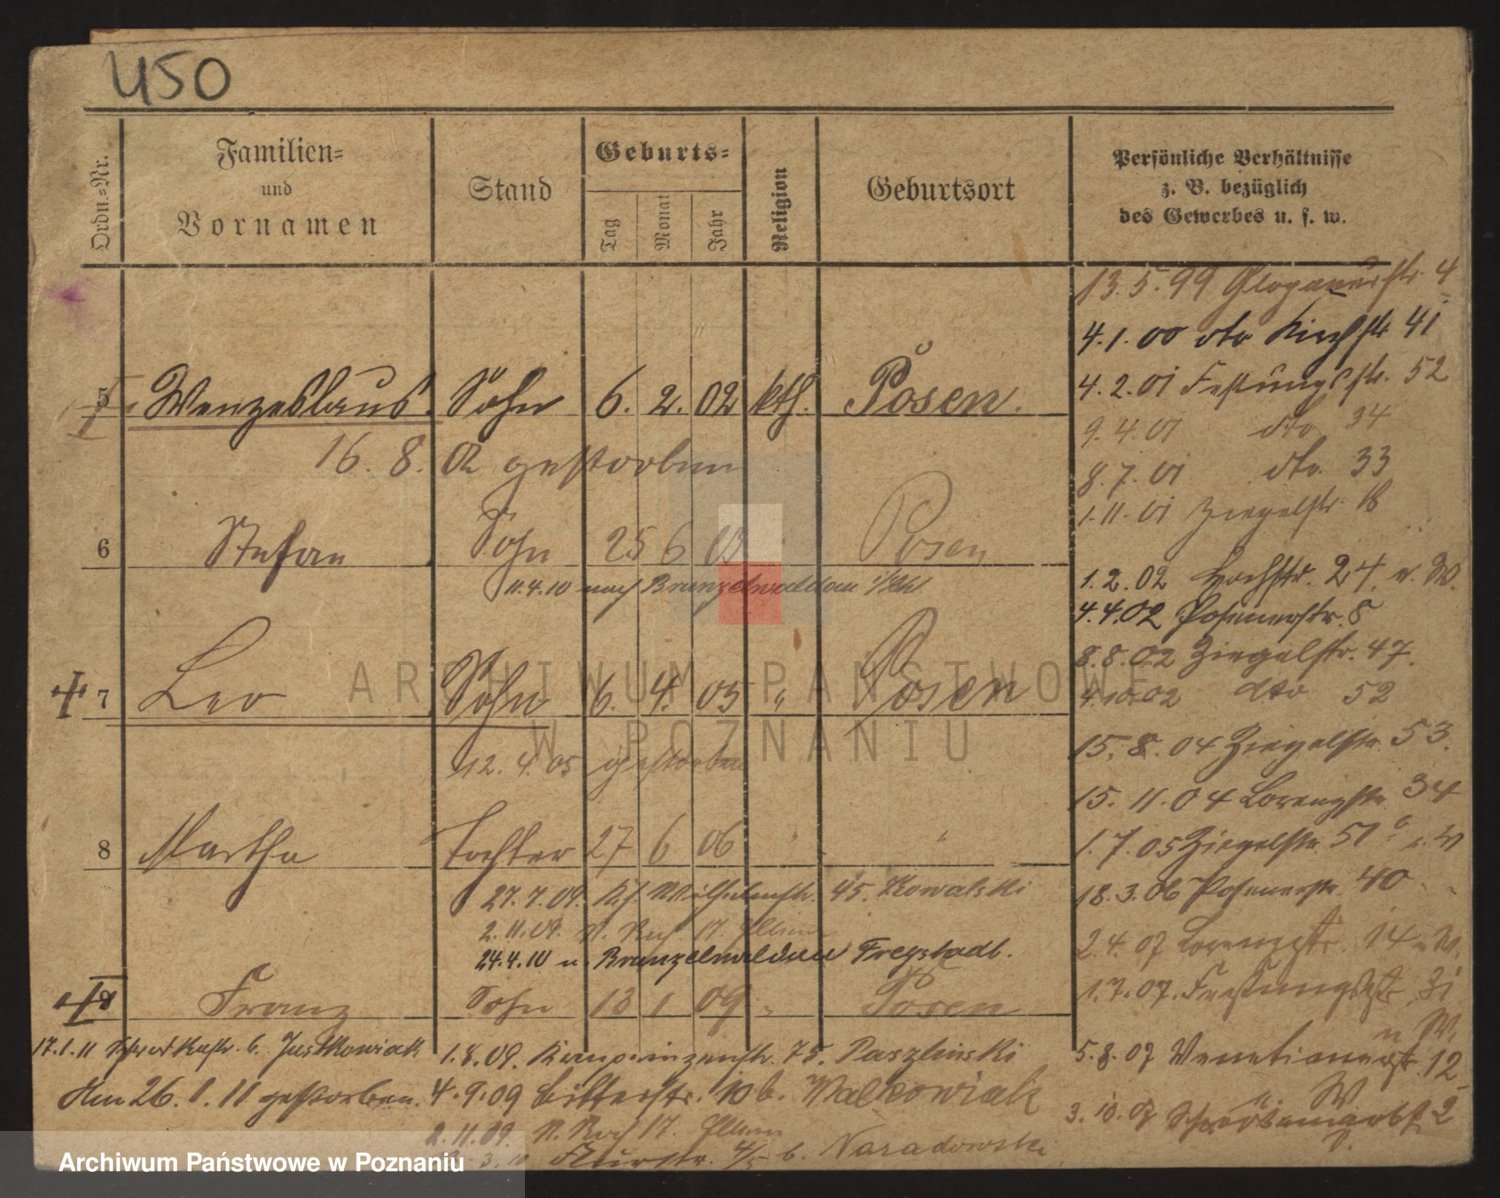 450
Ordn.=Nr.
Familien=
und
Vornamen
Stand
Geburts=
Tag
Monat
Jahr
Religion
Geburtsort
Persönliche Verhältnisse
z. B. bezüglich
des Gewerbes u. s. w.
13.5.99 Glogauerstr. 4
4.1.00 dto Kirchstr 41
4.2.01 Festungsstr. 52
9.4.01 dto 34
8.7.01 dto. 33
1.11.01 Ziegelstr. 18
1.2.02 Hochstr. 24. n. W.
4.4.02 Posenerstr. 8
8.8.02 Ziegelstr. 47.
4.10.02 dto 52
15.8.04 Ziegelstr. 53.
15.11.04 Lorenzstr. 34
1.7.05 Ziegelstr. 51
18.3.06 Posenerstr. 40
2.4.07 Lorenzstr. 14 n. W.
1.7.07. Festungsstr. 31
n W.
5.8.07 Venetianerstr. 12
W
3.10.07 2
5 Wenzeslaus. Sohn 6. 2. 02 kth. Posen.
16. 8. 02 gestorben
6 Stefan Sohn 25 6 Posen
11.4.10 nach Brunzelwaldau
7 Leo Sohn 6. 4. 05 " Posen
12. 4. 05 gestorben
8 Martha Tochter 27 6 06 " "
27.7.09. Wilhelmstr. 45. Kowalski
2.11.09. 17.
24.4.10 n. Brunzelwaldau Freystadt.
9 Franz Sohn 13 1 09 " Posen
17.1.11 6. Justkowiak
Am 26. 1. 11 gestorben.
1.8.09. Kronprinzenstr. 75. Paszlinski
4.9.09 Bitterstr. 10 b. Walkowiak
2.11.09. 17.
3.10 Flurstr. b. Naradowski
ARCHIWUM PAŃSTWOWE
W POZNANIU
Archiwum Państwowe w Poznaniu